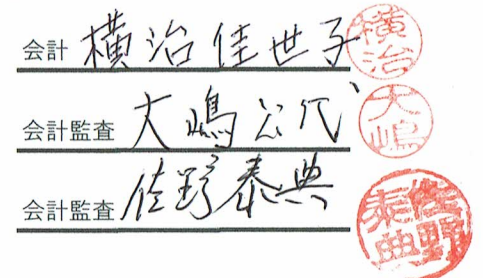 会計 横治佳世子 横治
会計監査 大嶋公代 大嶋
会計監査 佐野泰典 佐野泰典